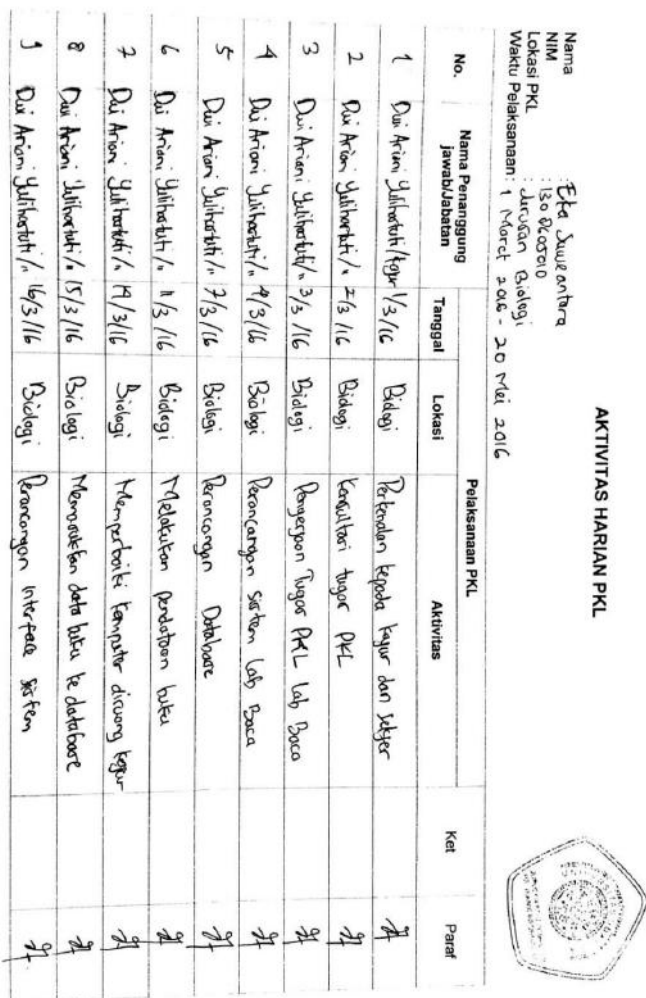 AKTIVITAS HARIAN PKL
Nama : Eka Suweantara
NIM : 1308605010
Lokasi PKL : Jurusan Biologi
Waktu Pelaksanaan : 1 Maret 2016 - 20 Mei 2016
No. Nama Penanggung jawab/Jabatan Pelaksanaan PKL Ket Paraf
Tanggal Lokasi Aktivitas
1 Dwi Ariani Yulihastuti/kajur 1/3/16 Biologi Perkenalan kepada kajur dan sekjur
2 Dwi Ariani Yulihastuti/" 2/3/16 Biologi Konsultasi tugas PKL
3 Dwi Ariani Yulihastuti/" 3/3/16 Biologi Pengerjaan Tugas PKL Lab Baca
4 Dwi Ariani Yulihastuti/" 4/3/16 Biologi Perancangan sistem Lab Baca
5 Dwi Ariani Yulihastuti/" 7/3/16 Biologi Perancangan Database
6 Dwi Ariani Yulihastuti/" 11/3/16 Biologi Melakukan pendataan buku
7 Dwi Ariani Yulihastuti/" 14/3/16 Biologi Memperbaiki komputer diruang kajur
8 Dwi Ariani Yulihastuti/" 15/3/16 Biologi Memasukkan data buku ke database
9 Dwi Ariani Yulihastuti/" 16/3/16 Biologi Perancangan interface sistem